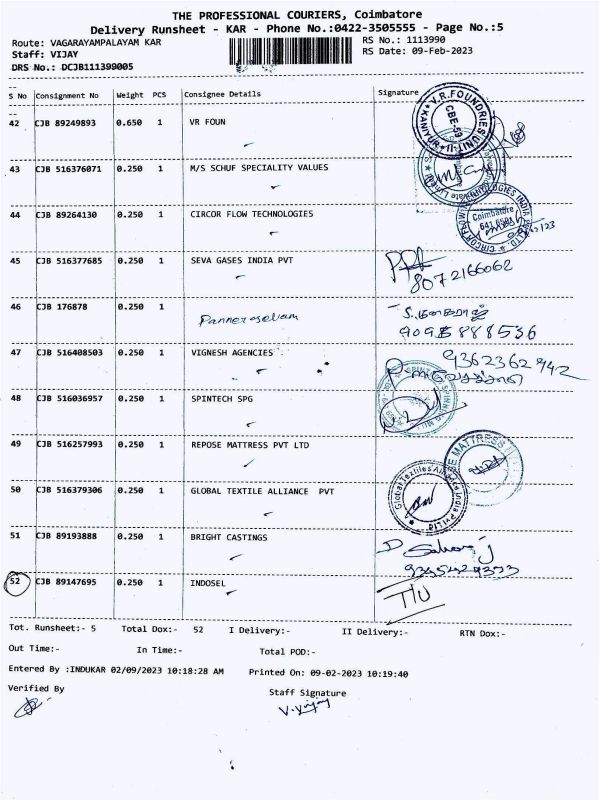 THE PROFESSIONAL COURIERS, Coimbatore
Delivery Runsheet - KAR - Phone No.:0422-3505555 - Page No.:5
Route: VAGARAYAMPALAYAM KAR
RS No.: 1113990
Staff: VIJAY
RS Date: 09-Feb-2023
DRS No.: DCJB111399005
S No Consignment No Weight PCS Consignee Details Signature
42 CJB 89249893 0.650 1 VR FOUN
V.R.FOUNDRIES UNIT-II KANIYUR CBE-59
43 CJB 516376071 0.250 1 M/S SCHUF SPECIALITY VALUES
44 CJB 89264130 0.250 1 CIRCOR FLOW TECHNOLOGIES
CIRCOR FLOW TECHNOLOGIES INDIA Coimbatore
45 CJB 516377685 0.250 1 SEVA GASES INDIA PVT
8072166062
46 CJB 176878 0.250 1 Panneerselvam
47 CJB 516408503 0.250 1 VIGNESH AGENCIES
9362362942
48 CJB 516036957 0.250 1 SPINTECH SPG
49 CJB 516257993 0.250 1 REPOSE MATTRESS PVT LTD
MATTRESS
50 CJB 516379306 0.250 1 GLOBAL TEXTILE ALLIANCE PVT
Global Textiles Alliance India Pvt Ltd
51 CJB 89193888 0.250 1 BRIGHT CASTINGS
52 CJB 89147695 0.250 1 INDOSEL
Tot. Runsheet:- 5 Total Dox:- 52 I Delivery:- II Delivery:- RTN Dox:-
Out Time:- In Time:- Total POD:-
Entered By :INDUKAR 02/09/2023 10:18:28 AM Printed On: 09-02-2023 10:19:40
Verified By Staff Signature
V.Vijay